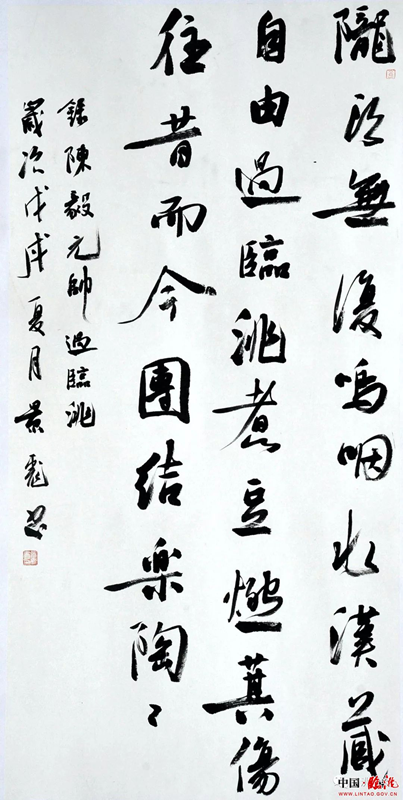 隴頭無復嗚咽水漢藏
自由過臨洮煮豆燃萁傷
往昔而今團結樂陶〻
錄陳毅元帥過臨洮
歲次戊戌夏月景彪書
中国·临洮
WWW.LINTAO.GOV.CN